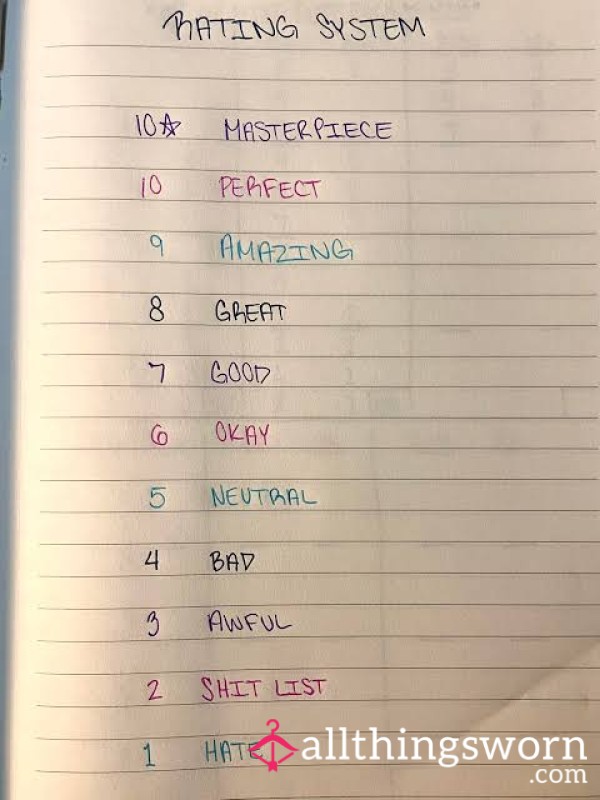 RATING SYSTEM
10☆ MASTERPIECE
10 PERFECT
9 AMAZING
8 GREAT
7 GOOD
6 OKAY
5 NEUTRAL
4 BAD
3 AWFUL
2 SHIT LIST
1 HATE
allthingsworn
.com